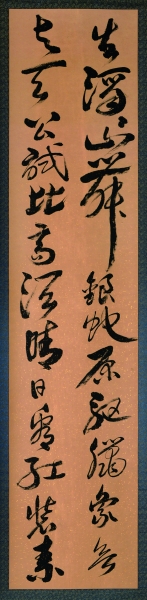 失滔滔山舞銀蛇原驅臘象欲
与天公試比高須晴日看紅裝素